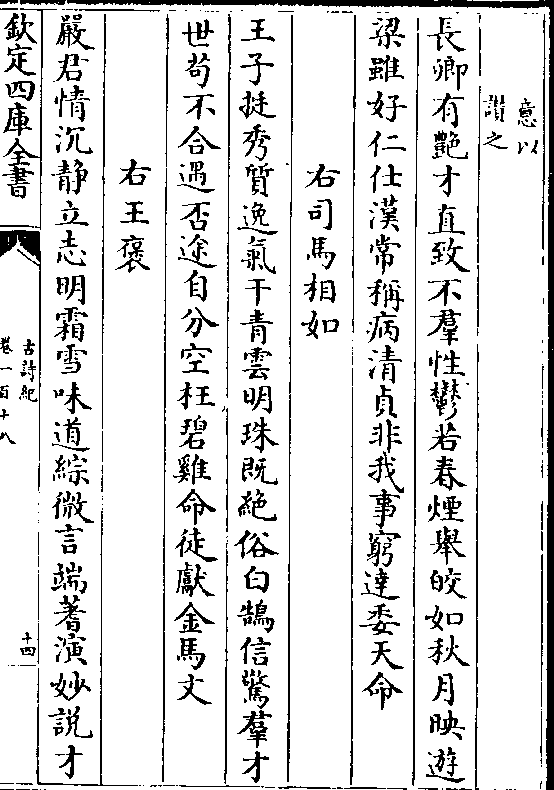 意以
讃之
長卿有艶才直致不羣性鬱若春煙舉皎如秋月映遊
梁雖好仁仕漢常稱病清貞非我事窮達委天命
右司馬相如
王子挺秀質逸氣干青雲明珠既絶俗白鵠信驚羣才
世苟不合遇否途自分空枉碧雞命徒獻金馬文
右王褒
嚴君情沉静立志明霜雪味道綜微言端蓍演妙説才
欽定四庫全書
古詩紀
卷一百十八
十四